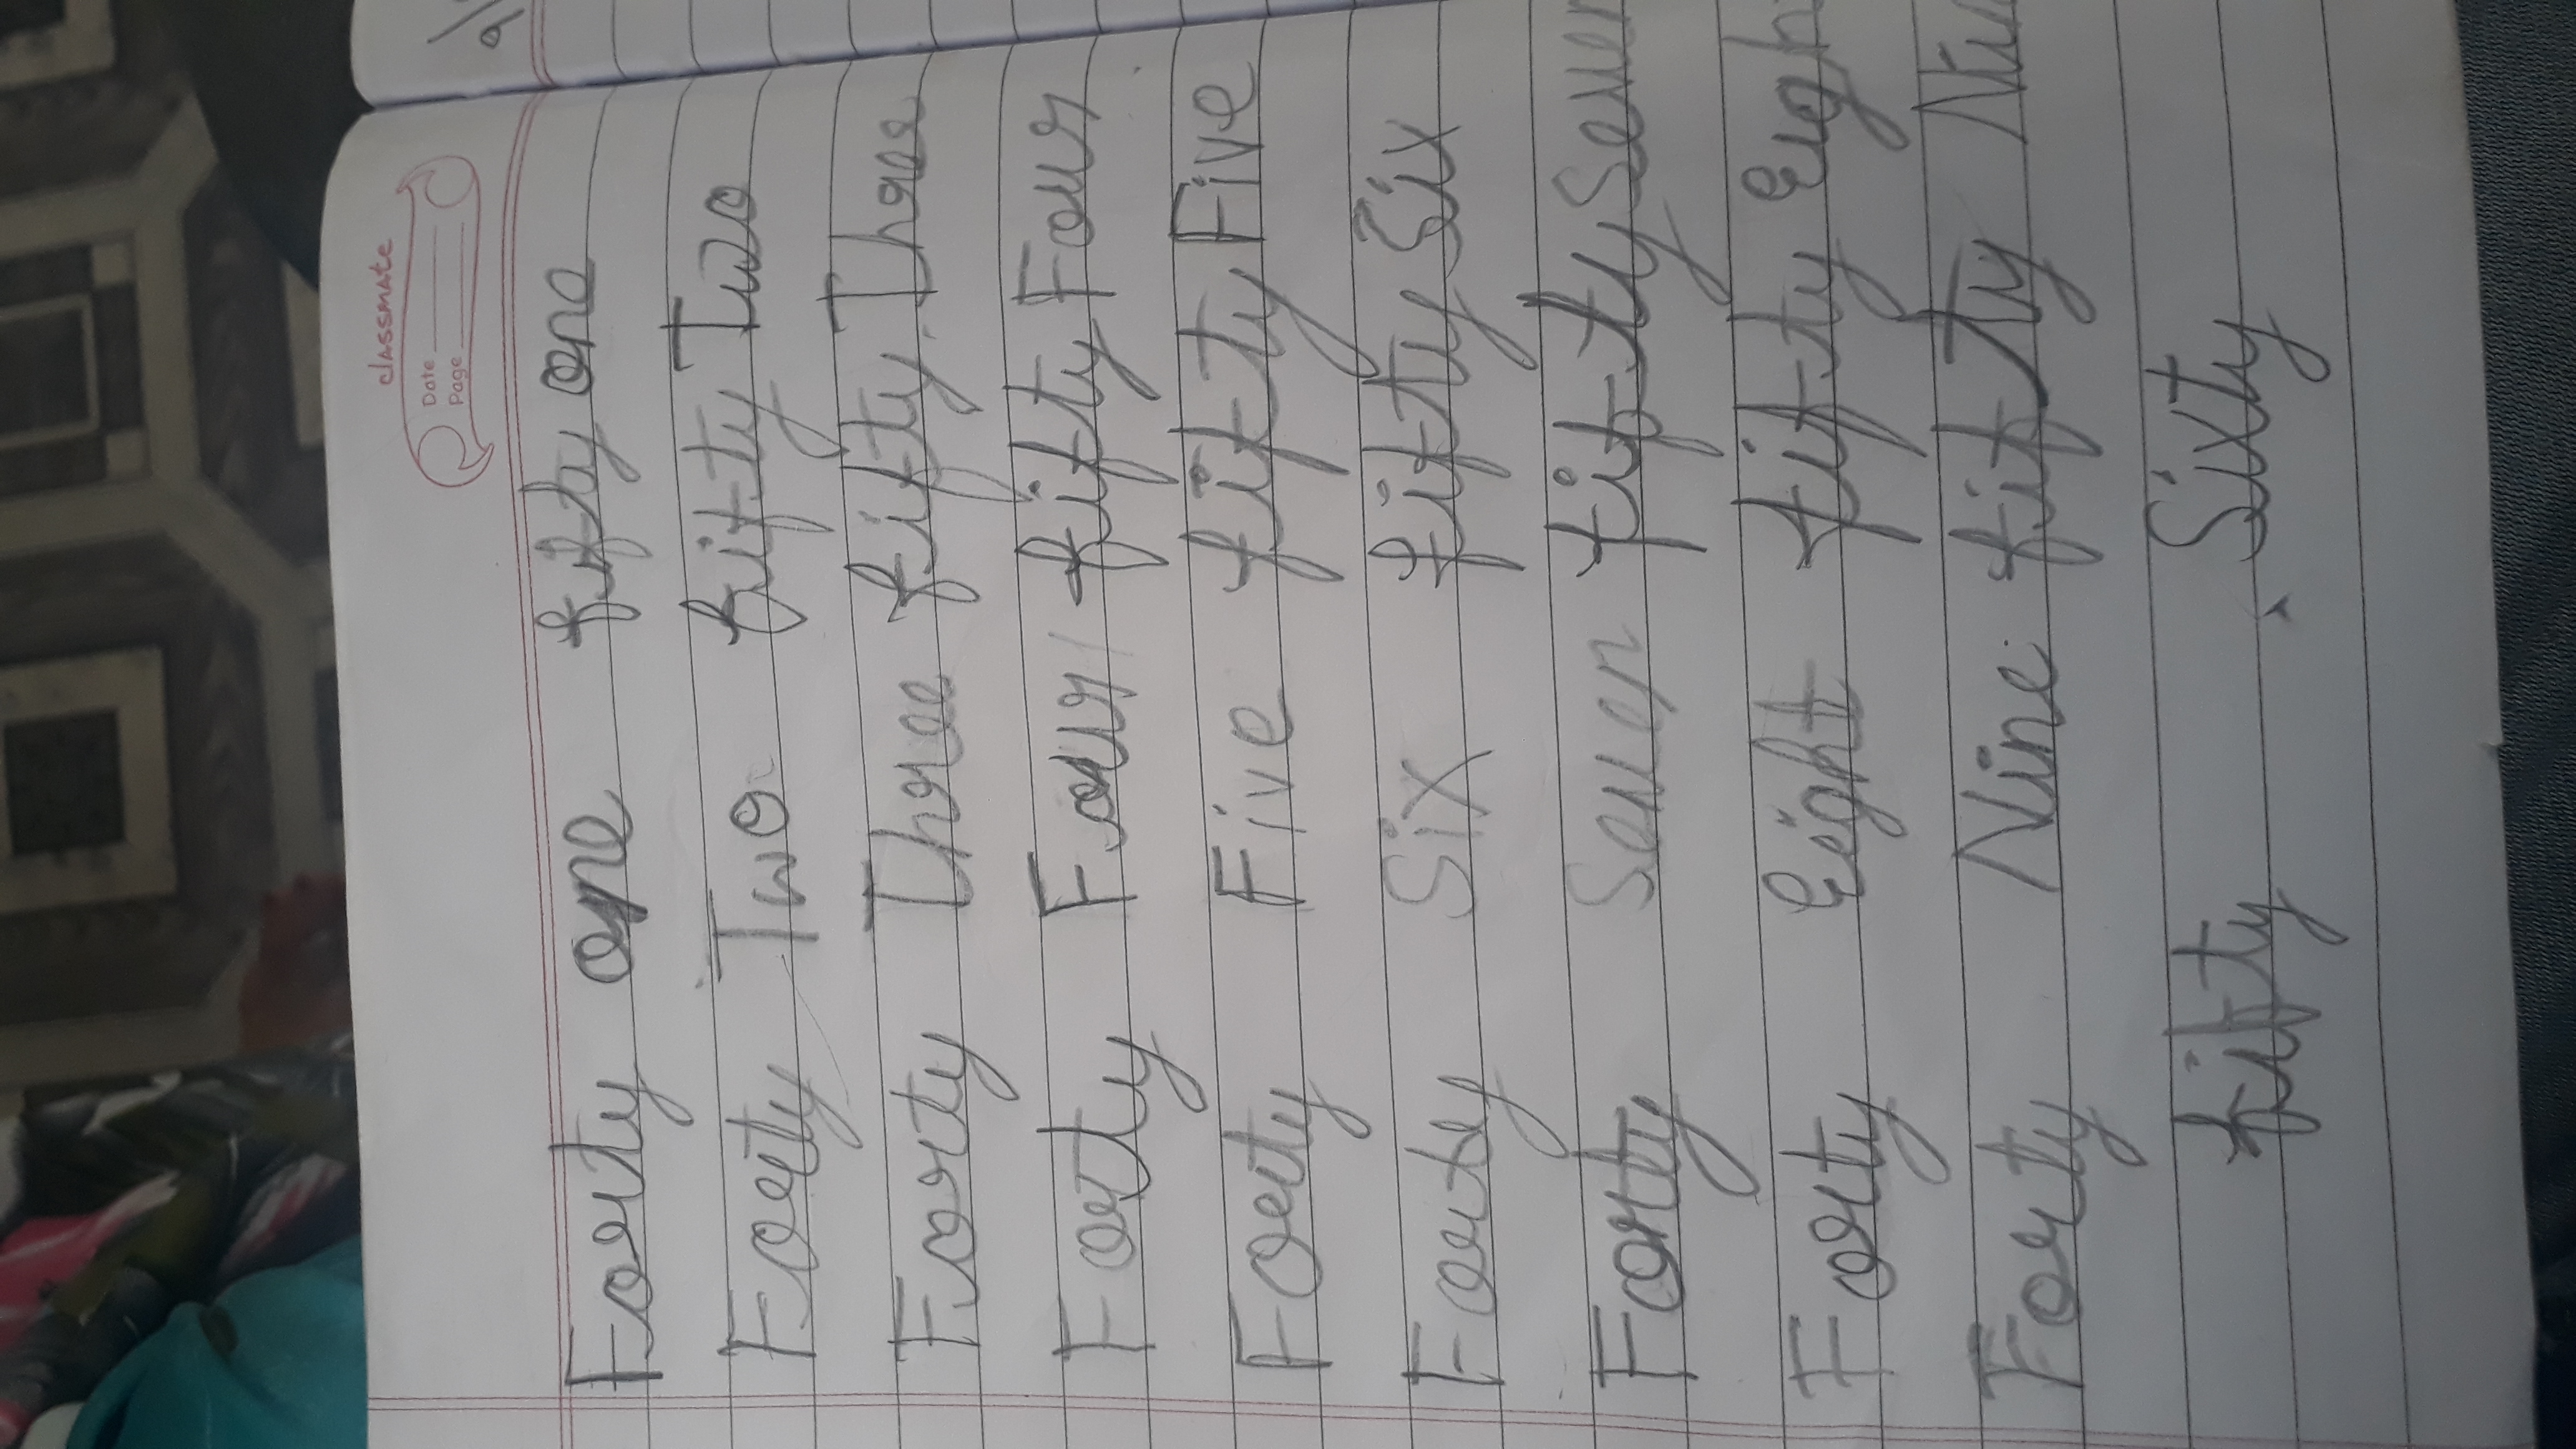 classmate
Date
Page
Forty one fifty one
Forty Two fifty Two
Forty Three fifty Three
Forty Four fifty Four
Forty Five fifty Five
Forty Six fifty Six
Forty Seven fifty Seven
Forty Eight fifty Eigh
Forty Nine fifty
fifty Sixty